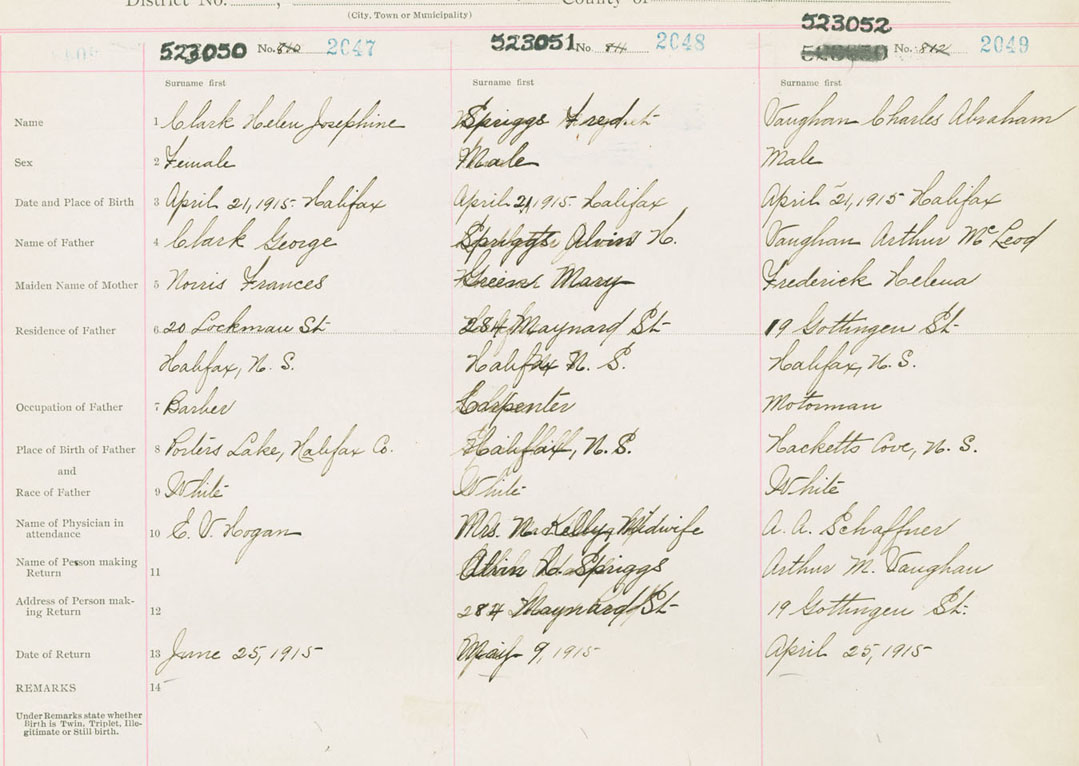 District No. , County of
(City, Town or Municipality)
523050 No. 810 2047 523051 No. 811 2048 523052 No. 812 2049
Surname first Surname first Surname first
Name 1 Clark Helen Josephine Spriggs Vaughan Charles Abraham
Sex 2 Female Male Male
Date and Place of Birth 3 April 21, 1915 Halifax April 21, 1915 Halifax April 21, 1915 Halifax
Name of Father 4 Clark George Spriggs Alvin H. Vaughan Arthur McLeod
Maiden Name of Mother 5 Norris Frances Green Mary Frederick Helena
Residence of Father 6 20 Lockman St 284 Maynard St 19 Gottingen St
Halifax, N. S. Halifax N. S. Halifax, N. S.
Occupation of Father 7 Barber Carpenter Motorman
Place of Birth of Father 8 Porters Lake, Halifax Co. Halifax, N. S. Hacketts Cove, N. S.
and
Race of Father 9 White White White
Name of Physician in
attendance 10 E. V. Hogan Mrs. Kelly, Midwife A. A. Schaffner
Name of Person making
Return 11 Alvin H. Spriggs Arthur M. Vaughan
Address of Person mak-
ing Return 12 284 Maynard St 19 Gottingen St.
Date of Return 13 June 25, 1915 May 9, 1915 April 25, 1915
REMARKS 14
Under Remarks state whether
Birth is Twin, Triplet, Ille-
gitimate or Still birth.